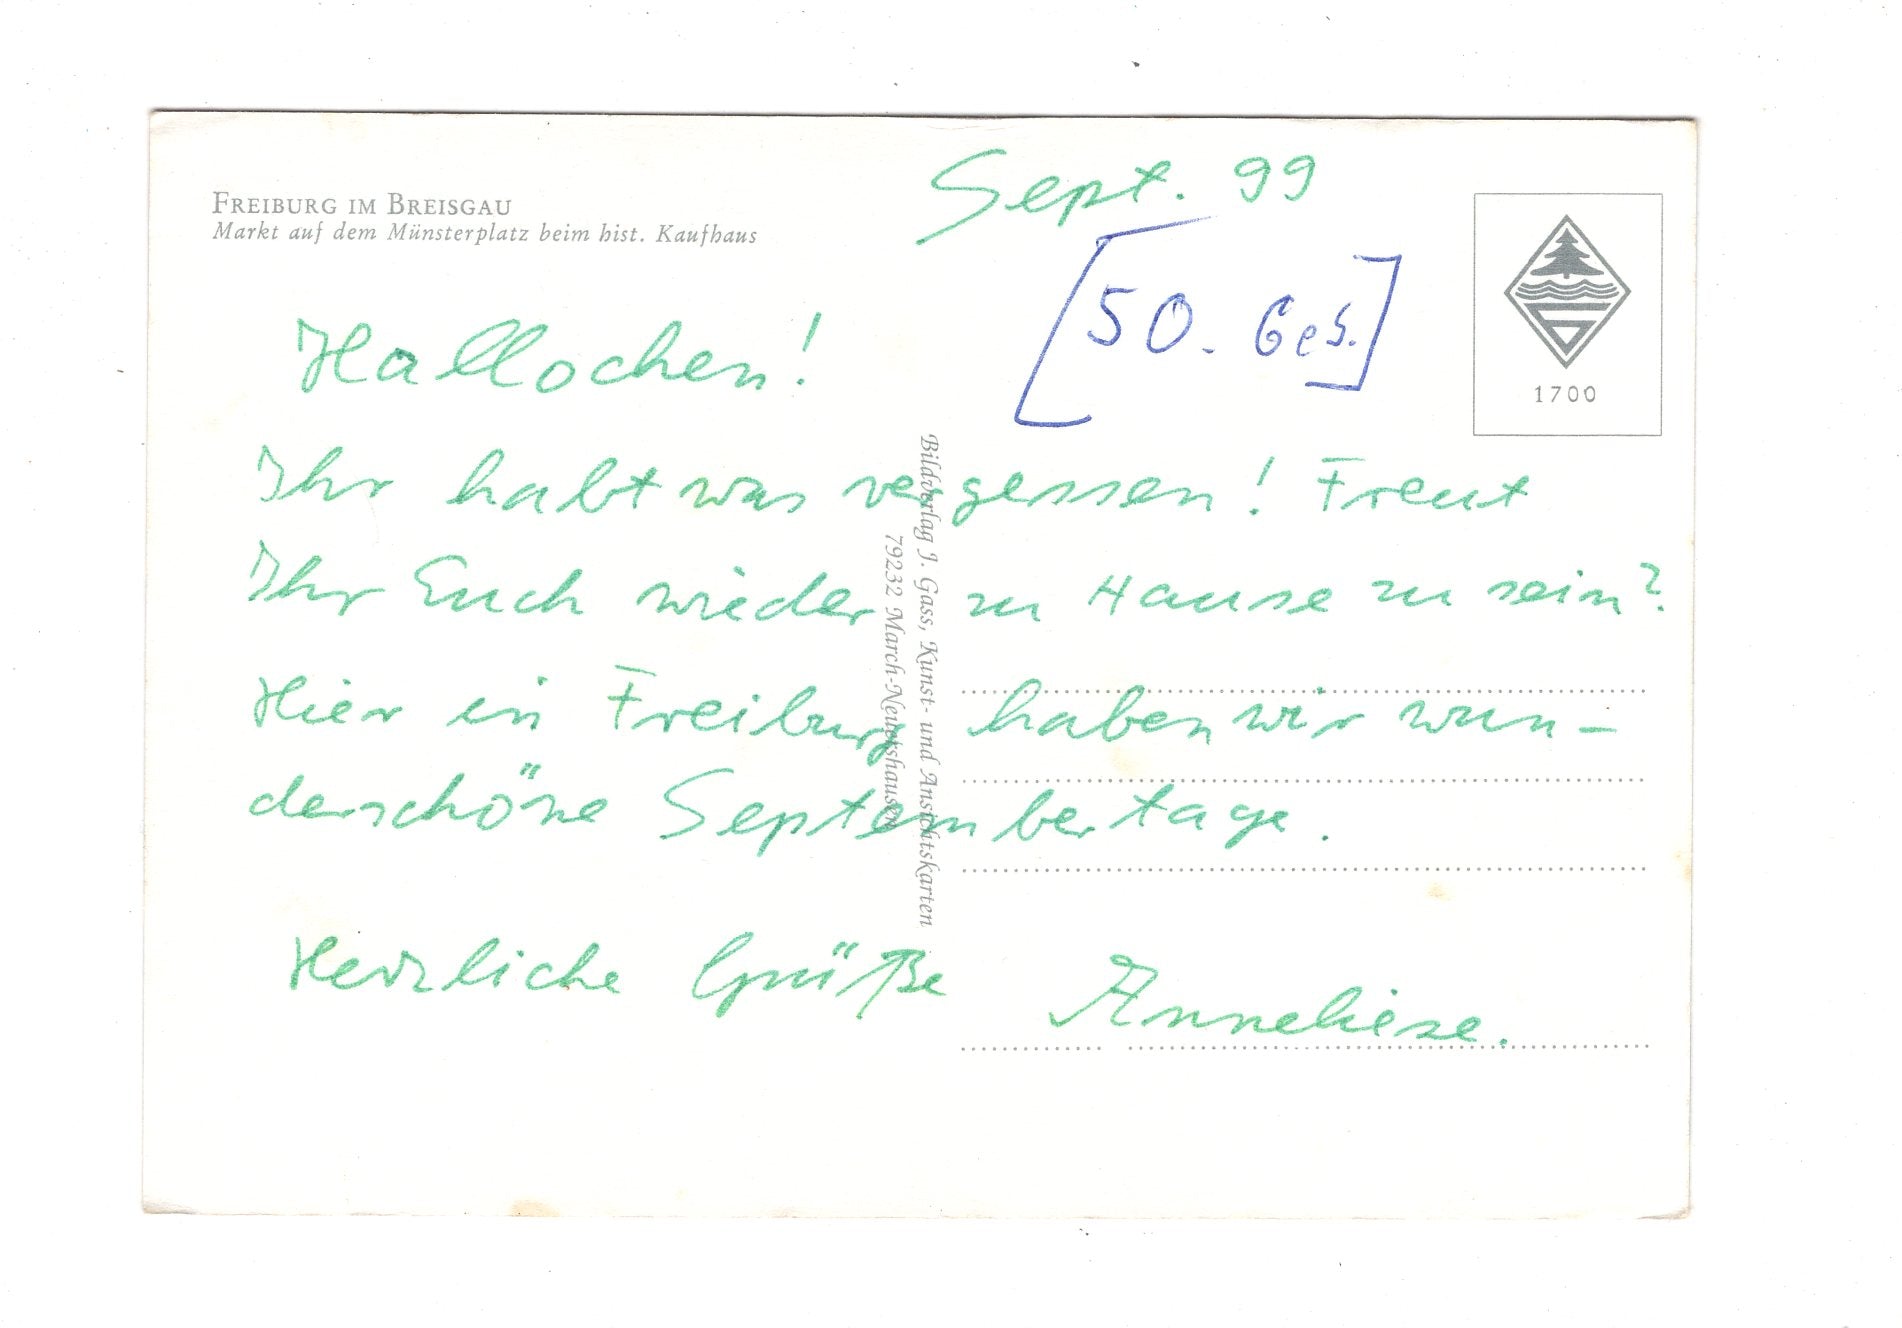 FREIBURG IM BREISGAU
Markt auf dem Münsterplatz beim hist. Kaufhaus
Sept. 99
[50. Geb.]
1700
Hallochen!
Ihr habt was vergessen! Freut
Ihr Euch wieder zu Hause zu sein?
Hier in Freiburg haben wir wun-
derschöne Septembertage.
Herzliche Grüße Anneliese.
Bildverlag J. Gass, Kunst- und Ansichtskarten
79232 March-Neuershausen